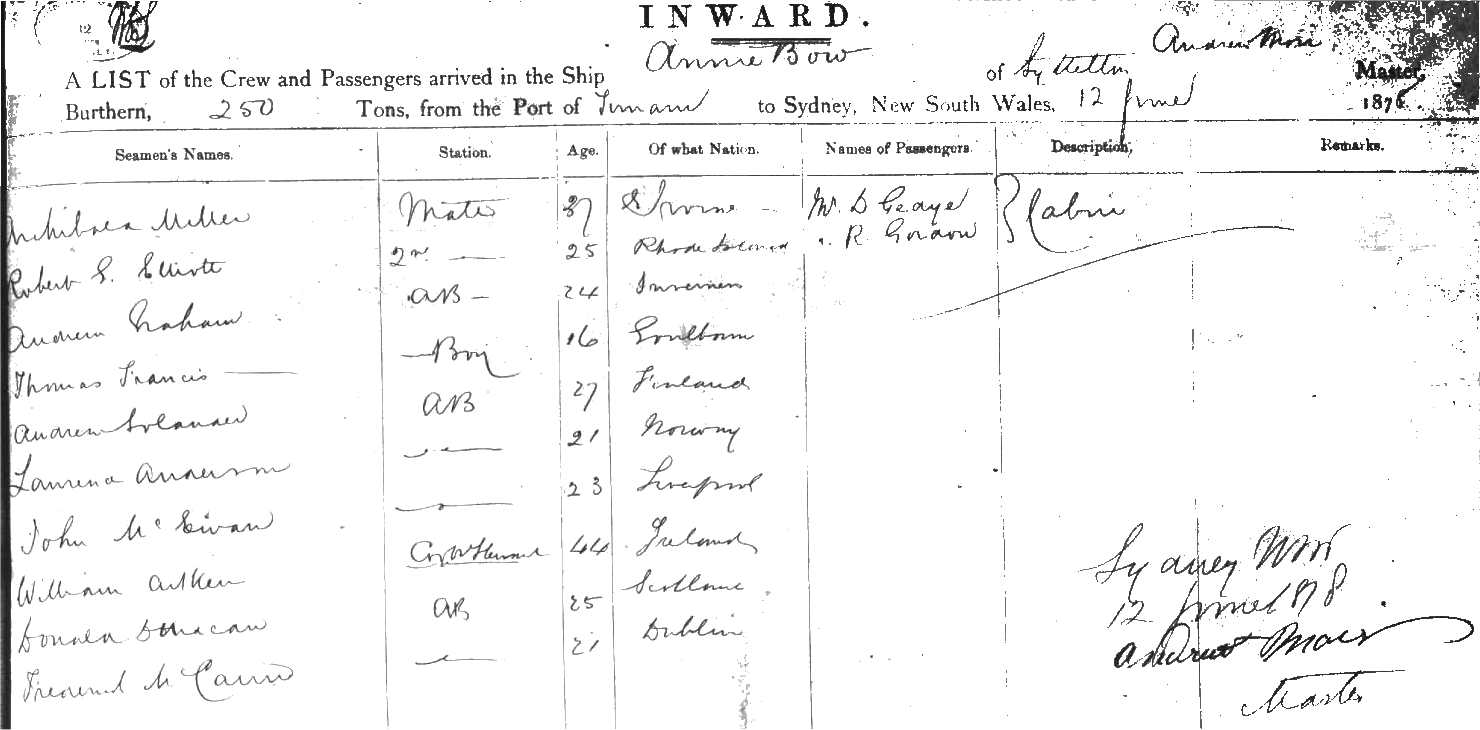 INWARD.
Annie Bow
Andrew Moir
A LIST of the Crew and Passengers arrived in the Ship of Lyttelton, Master,
Burthern, 250 Tons, from the Port of Timaru to Sydney, New South Wales, 12 June 1878
Seamen's Names. Station. Age. Of what Nation. Names of Passengers. Description, Remarks.
Archibald Miller Mate 37 Irvine Mr. D Geaye Cabin
Robert G. Elliott 2nd 25 Rhode Island " R Gordon
Andrew Graham AB 24 Inverness
Thomas Francis Boy 16 Goulbourn
Andrew Solander AB 27 Finland
Laurence Anderson 21 Norway
John McEwan 23 Liverpool
William Aitken Cook & Steward 44 Ireland
Donald Duncan AB 25 Scotland
Frederick McCann 21 Dublin
Sydney NSW
12 June 1878.
Andrew Moir
Master